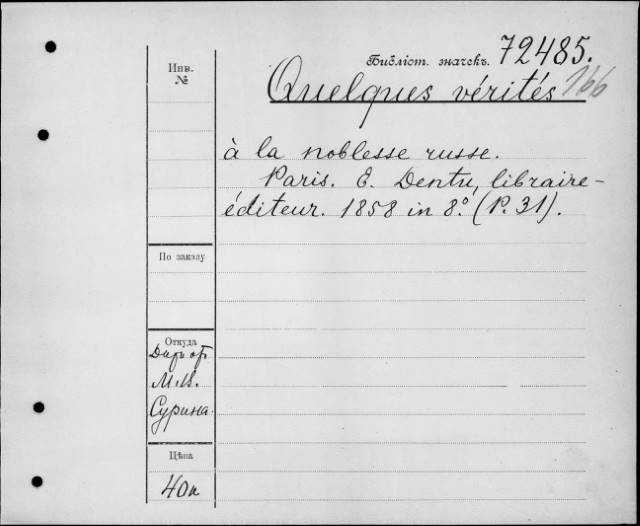 Библіот. значекъ. 72485.
166
Инв.
№
Quelques vérités
à la noblesse russe.
Paris. E. Dentu, libraire-
éditeur. 1858 in 8.º (P. 31).
По заказу
Откуда
Даръ от
М.
Сурина.
Цѣна
40к